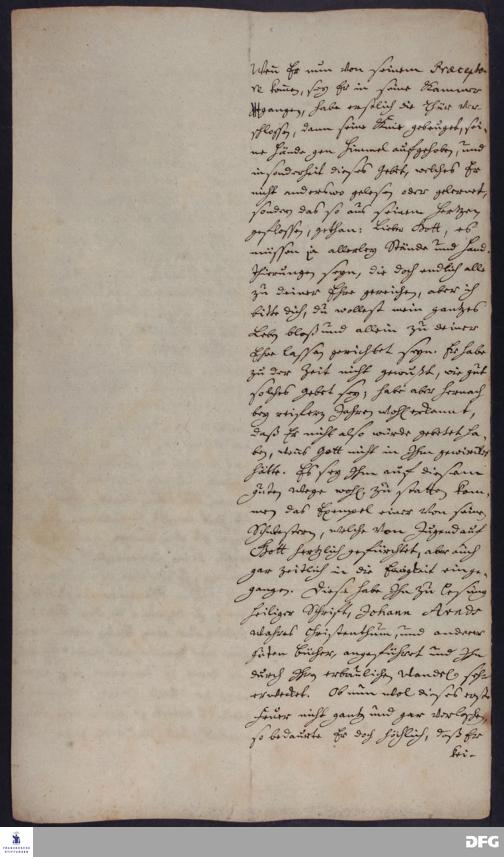 Wen̄ Er nun von seinem Præcepto-
re kom̄en, sey Er in seine Kammer
gangen, habe erstlich die Thür ver-
schlossen, dann seine Knie gebeuget, sei-
ne Hände gen Himmel aufgehoben, und
insonderheit dieses Gebet, welches Er
nicht anderswo gelesen oder gelernet,
sondern das so aus seinem Hertzen
geflossen, gethan: Lieber Gott, es
müssen ja allerley Stände und Hand-
thierungen seyn, die doch endlich alle
zu deiner Ehre gereichen, aber ich
bitte dich, du wollest mein gantzes
Leben bloß und allein zu deiner
Ehre lassen gerichtet seyn. Er habe
zu der Zeit nicht gewußt, wie gut
solches Gebet sey; habe aber hernach
bey reifern Jahren wohl erkannt,
daß Er nicht also würde gebetet ha-
ben, wens Gott nicht in Ihm gewircket
hätte. Es sey Ihm auf diesem
guten Wege wohl zu statten kom-
men das Exempel einer von seinen
Schwestern, welche von Jugend auf
Gott hertzlich gefürchtet, aber auch
gar zeitlich in die Ewigkeit einge-
gangen. Diese habe Ihn zu Lesung
heiliger Schrift, Johann Arnds
wahres Christenthum, und anderer
guten Bücher, angeführet und Ihn
durch Ihren erbaulichen Wandel sehr
erwecket. Ob nun wol dieses erste
Feuer nicht gantz und gar verloschen,
so bedaurte Er doch höchlich, daß Er
kei-
FRANCKESCHE
STIFTUNGEN
DFG